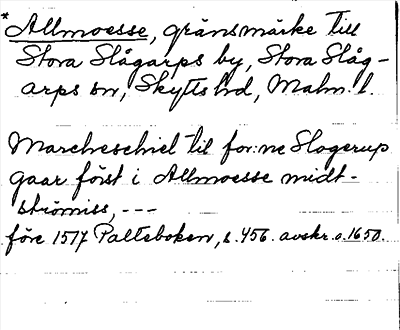 *Allmoesse, gränsmärke till
Stora Slågarps by, Stora Slåg-
arps sn, Skytts hd, Malm. l.
Marcheschiel til for:ne Slogerup
gaar först i Allmoesse midt-
strömiss, ---
före 1517 Palteboken, s. 456. avskr. o. 1650.